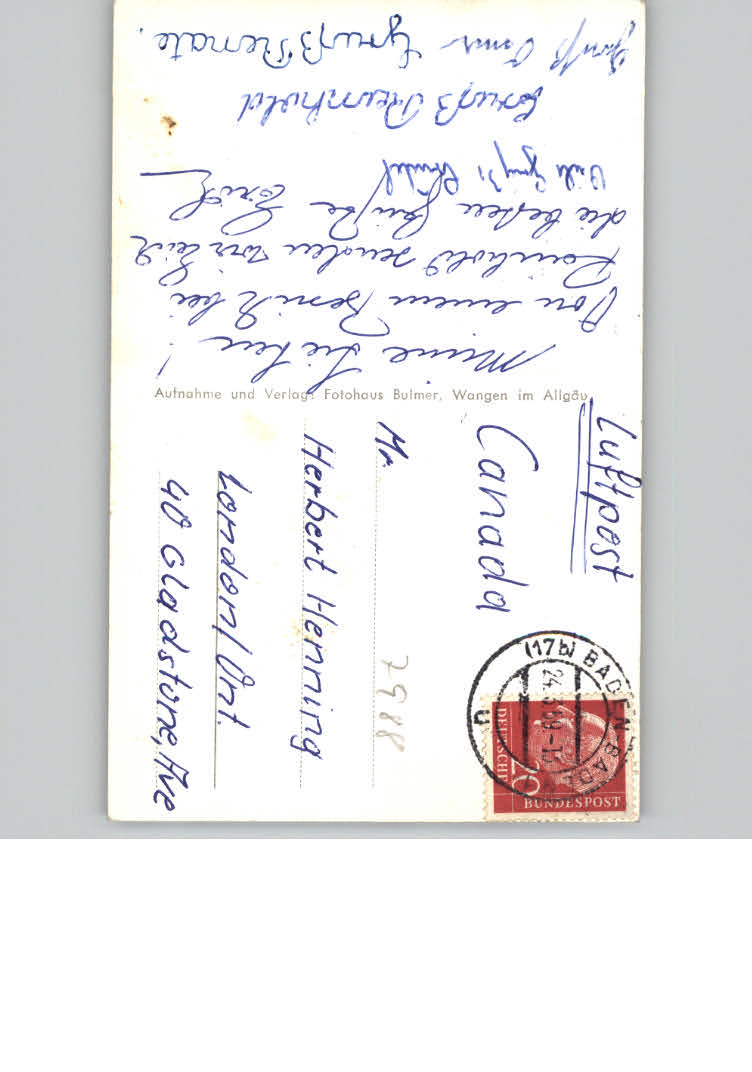 Meine Lieben!
Von einem Besuch bei
Reinhold senden wir Euch
die besten Grüße Erich
Viele Grüße
Gruß Reinhold
Gruß Oma Gruß Renate.
Aufnahme und Verlag: Fotohaus Bulmer, Wangen im Allgäu
Luftpost
Canada
Mr.
Herbert Henning
London/Ont.
40 Gladstone, Ave
7988
(17b) BADEN-BADEN
24.3.59-1
n
DEUTSCHE
BUNDESPOST
20